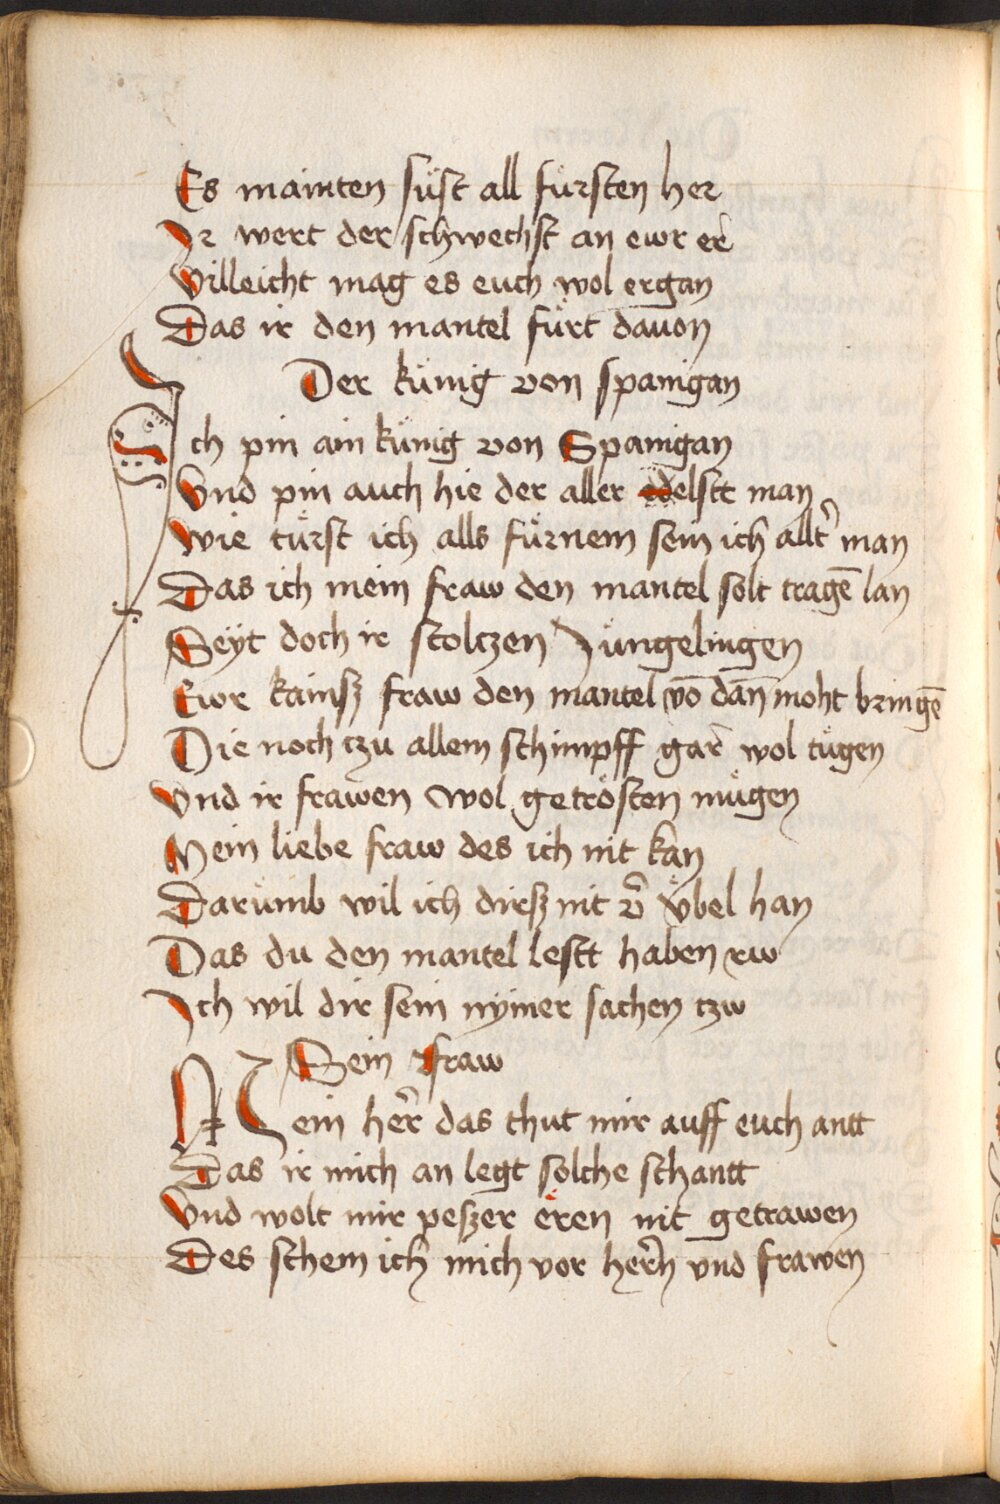 Es mainten süst all fürsten her
Ir wert der schwechst an ewr er
Villeicht mag es euch wol ergan
Das ir den mantel fürt dauon
Der künig von spanigan
Ich pin ain künig von Spanigan
Vnd pin auch hie der aller edelstt man
Wie türst ich alls fürnem sein ich allt̾ man
Das ich mein fraw den mantel solt tragē lan
Seyt doch ir stoltzen Jüngelingen
Ewr kainsz fraw den mantel vō dañ moht bringē
Die noch tzu allem schimpff gar wol tügen
Vnd ir frawen wol getrösten mügen
Mein liebe fraw des ich nit kan
Darümb wil ich dirsz nit v̾ übel han
Das du den mantel lestt haben rw
Ich wil dir sein nymer sachen tzw
Sein fraw
Nein her̾ das thut mir auff euch antt
Das ir mich an legt solche schantt
Vnd wolt mir peszer eren nit getrawen
Des schem ich mich vor her̾n vnd frawen